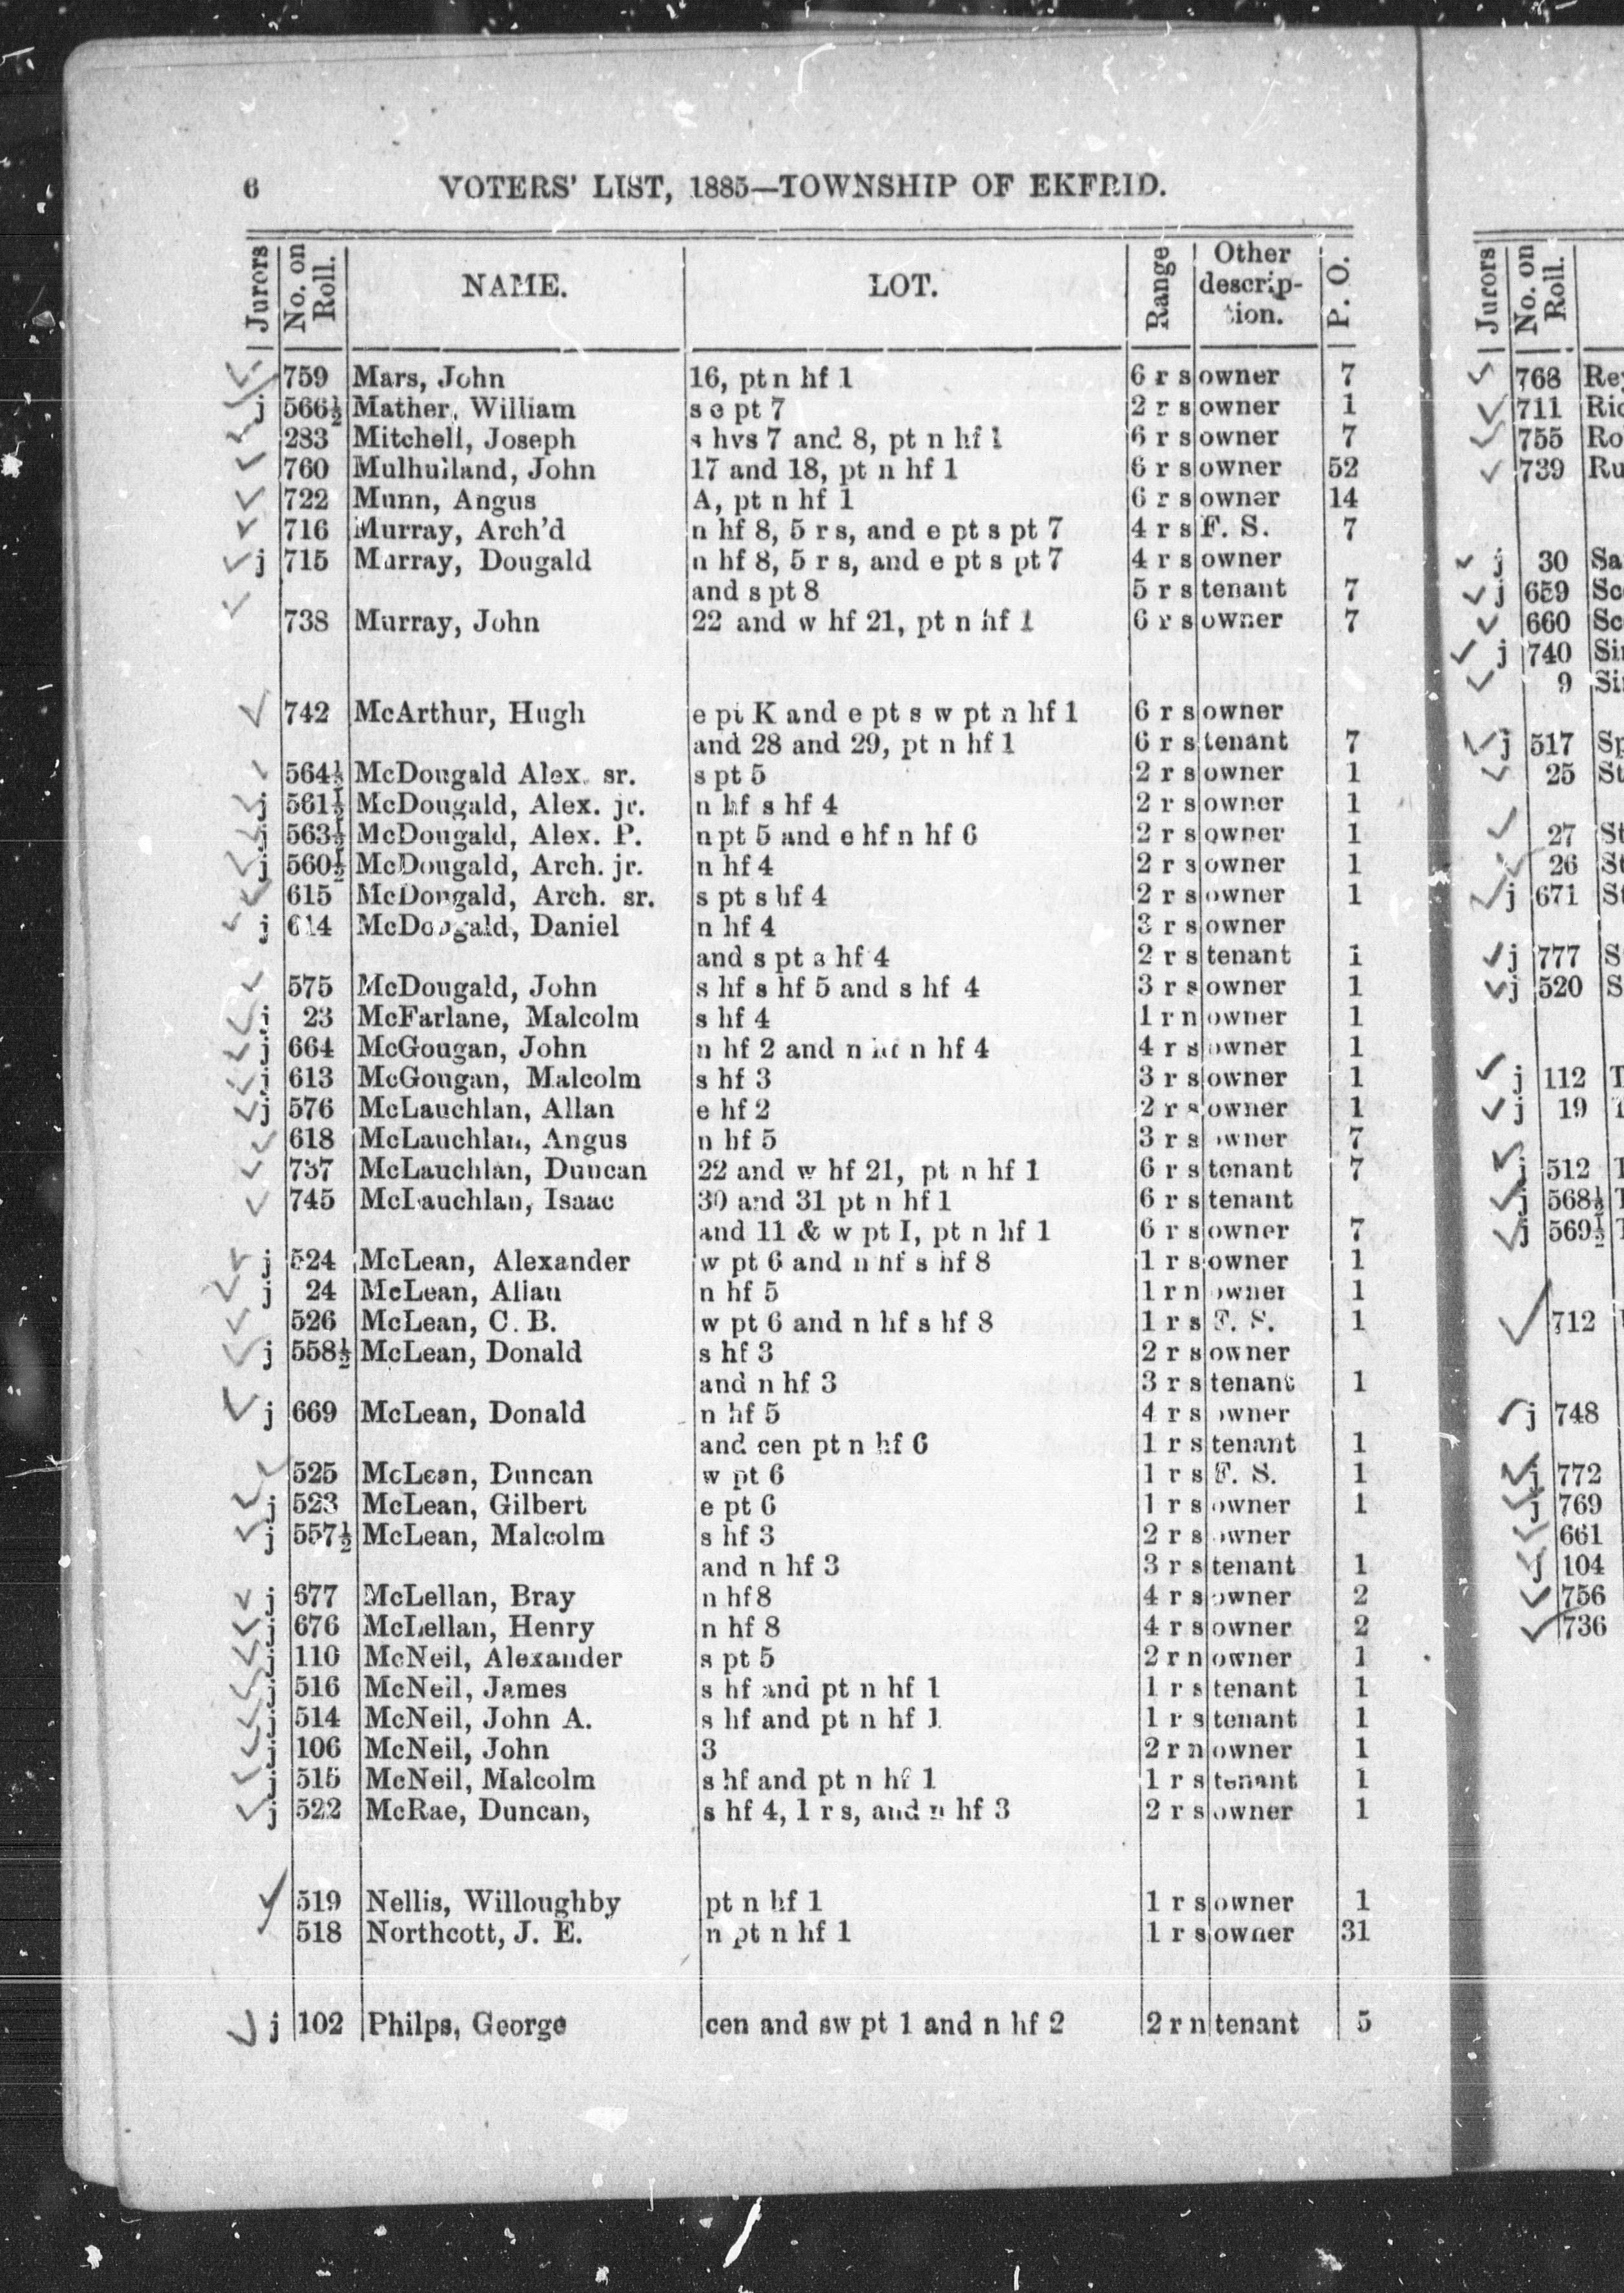 6 VOTERS' LIST, 1885—TOWNSHIP OF EKFRID.
Jurors No. on Roll. NAME. LOT. Range Other descrip-tion. P. O.
759 Mars, John 16, pt n hf 1 6 r s owner 7
j 566½ Mather, William s e pt 7 2 r s owner 1
283 Mitchell, Joseph s hvs 7 and 8, pt n hf 1 6 r s owner 7
760 Mulhulland, John 17 and 18, pt n hf 1 6 r s owner 52
722 Munn, Angus A, pt n hf 1 6 r s owner 14
716 Murray, Arch'd n hf 8, 5 r s, and e pt s pt 7 4 r s F. S. 7
j 715 Murray, Dougald n hf 8, 5 r s, and e pt s pt 7 4 r s owner
and s pt 8 5 r s tenant 7
738 Murray, John 22 and w hf 21, pt n hf 1 6 r s owner 7
742 McArthur, Hugh e pt K and e pt s w pt n hf 1 6 r s owner
and 28 and 29, pt n hf 1 6 r s tenant 7
564½ McDougald Alex. sr. s pt 5 2 r s owner 1
j 561½ McDougald, Alex. jr. n hf s hf 4 2 r s owner 1
j 563½ McDougald, Alex. P. n pt 5 and e hf n hf 6 2 r s owner 1
j 560½ McDougald, Arch. jr. n hf 4 2 r s owner 1
615 McDougald, Arch. sr. s pt s hf 4 2 r s owner 1
j 614 McDougald, Daniel n hf 4 3 r s owner
and s pt s hf 4 2 r s tenant 1
575 McDougald, John s hf s hf 5 and s hf 4 3 r s owner 1
j 23 McFarlane, Malcolm s hf 4 1 r n owner 1
j 664 McGougan, John n hf 2 and n hf n hf 4 4 r s owner 1
j 613 McGougan, Malcolm s hf 3 3 r s owner 1
j 576 McLauchlan, Allan e hf 2 2 r s owner 1
618 McLauchlan, Angus n hf 5 3 r s owner 7
737 McLauchlan, Duncan 22 and w hf 21, pt n hf 1 6 r s tenant 7
745 McLauchlan, Isaac 30 and 31 pt n hf 1 6 r s tenant
and 11 & w pt I, pt n hf 1 6 r s owner 7
j 524 McLean, Alexander w pt 6 and n hf s hf 8 1 r s owner 1
j 24 McLean, Allan n hf 5 1 r n owner 1
526 McLean, C. B. w pt 6 and n hf s hf 8 1 r s F. S. 1
j 558½ McLean, Donald s hf 3 2 r s owner
and n hf 3 3 r s tenant 1
j 669 McLean, Donald n hf 5 4 r s owner
and cen pt n hf 6 1 r s tenant 1
525 McLean, Duncan w pt 6 1 r s F. S. 1
j 523 McLean, Gilbert e pt 6 1 r s owner 1
j 557½ McLean, Malcolm s hf 3 2 r s owner
and n hf 3 3 r s tenant 1
j 677 McLellan, Bray n hf 8 4 r s owner 2
j 676 McLellan, Henry n hf 8 4 r s owner 2
j 110 McNeil, Alexander s pt 5 2 r n owner 1
j 516 McNeil, James s hf and pt n hf 1 1 r s tenant 1
j 514 McNeil, John A. s hf and pt n hf 1 1 r s tenant 1
j 106 McNeil, John 3 2 r n owner 1
j 515 McNeil, Malcolm s hf and pt n hf 1 1 r s tenant 1
j 522 McRae, Duncan, s hf 4, 1 r s, and n hf 3 2 r s owner 1
519 Nellis, Willoughby pt n hf 1 1 r s owner 1
518 Northcott, J. E. n pt n hf 1 1 r s owner 31
j 102 Philps, George cen and sw pt 1 and n hf 2 2 r n tenant 5
Jurors No. on Roll.
768
711
755
739
j 30
j 659
660
j 740
9
j 517
25
27
26
j 671
j 777
j 520
j 112
j 19
j 512
j 568½
j 569½
712
j 748
j 772
j 769
661
j 104
756
736